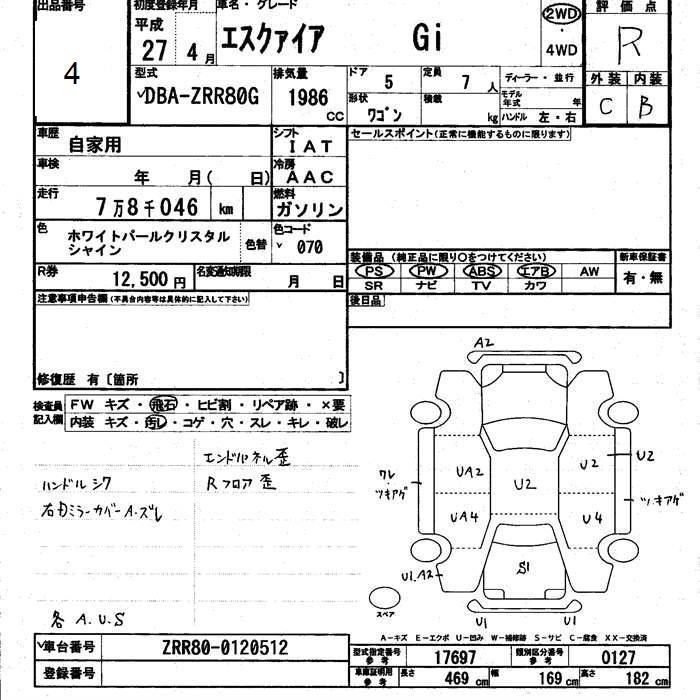 出品番号
4
初度登録年月
平成
27 4月
車名・グレード
エスクァイア Gi
2WD
・
4WD
評価点
R
外装 内装
C B
型式
DBA-ZRR80G
排気量
1986 CC
ドア 5
定員 7 人
形状 ワゴン
積載 kg
ディーラー・並行
モデル年式 年
ハンドル 左・右
車歴 自家用
シフト IAT
車検 年 月( 日)
冷房 AAC
走行 7万8千046 km
燃料 ガソリン
色 ホワイトパールクリスタルシャイン
色替
色コード 070
R券 12,500円
名変通知期限 月 日
セールスポイント(正常に機能するものに限ります)
装備品(純正品に限り○をつけてください)
PS PW ABS エアB AW
SR ナビ TV カワ
新車保証書
有・無
後日品
注意事項申告欄(不具合内容等は具体的に記入して下さい)
修復歴 有〔箇所 〕
検査員記入欄
FW キズ・飛石・ヒビ割・リペア跡・×要
内装 キズ・汚レ・コゲ・穴・スレ・キレ・破レ
エンドパネル歪
ハンドルシワ Rフロア歪
右ドミラーカバーA・ズレ
各A.U.S
A2
U2
U2
UA2
U2
ワレ
ツキアゲ
ツキアゲ
UA4
U4
S1
U1.A2
スペア
U1
U1
A-キズ E-エクボ U-凹み W-補修跡 S-サビ C-腐食 XX-交換済
車台番号 ZRR80-0120512
登録番号
型式指定番号参考 17697
類別区分番号参考 0127
車庫証明用参考 長さ 469cm 幅 169cm 高さ 182cm